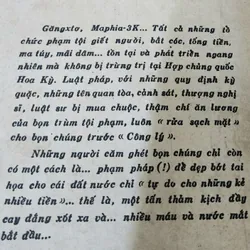 Găngxto, Maphia-3K... Tất cả những tổ
chức phạm tội giết người, bắt cóc, tống tiền,
ma túy, mãi dâm... tồn tại và phát triển ngang
nhiên mà không bị trừng trị tại Hợp chủng quốc
Hoa Kỳ. Luật pháp, với những quy định kỳ
quặc, những tên quan tòa, cảnh sát, thượng nghị
sĩ, luật sư bị mua chuộc, thậm chí ăn lương
của bọn trùm tội phạm, luôn « rửa sạch mặt »
cho bọn chúng trước « Công lý ».
Những người căm ghét bọn chúng chỉ còn
có một cách là... phạm pháp (!) để dẹp bớt tai
họa cho cái đất nước chỉ « tự do cho những kẻ
nhiều tiền »... thế là, một tấn thảm kịch đầy
cay đắng xót xa và... nhiều máu và nước mắt
bắt đầu...